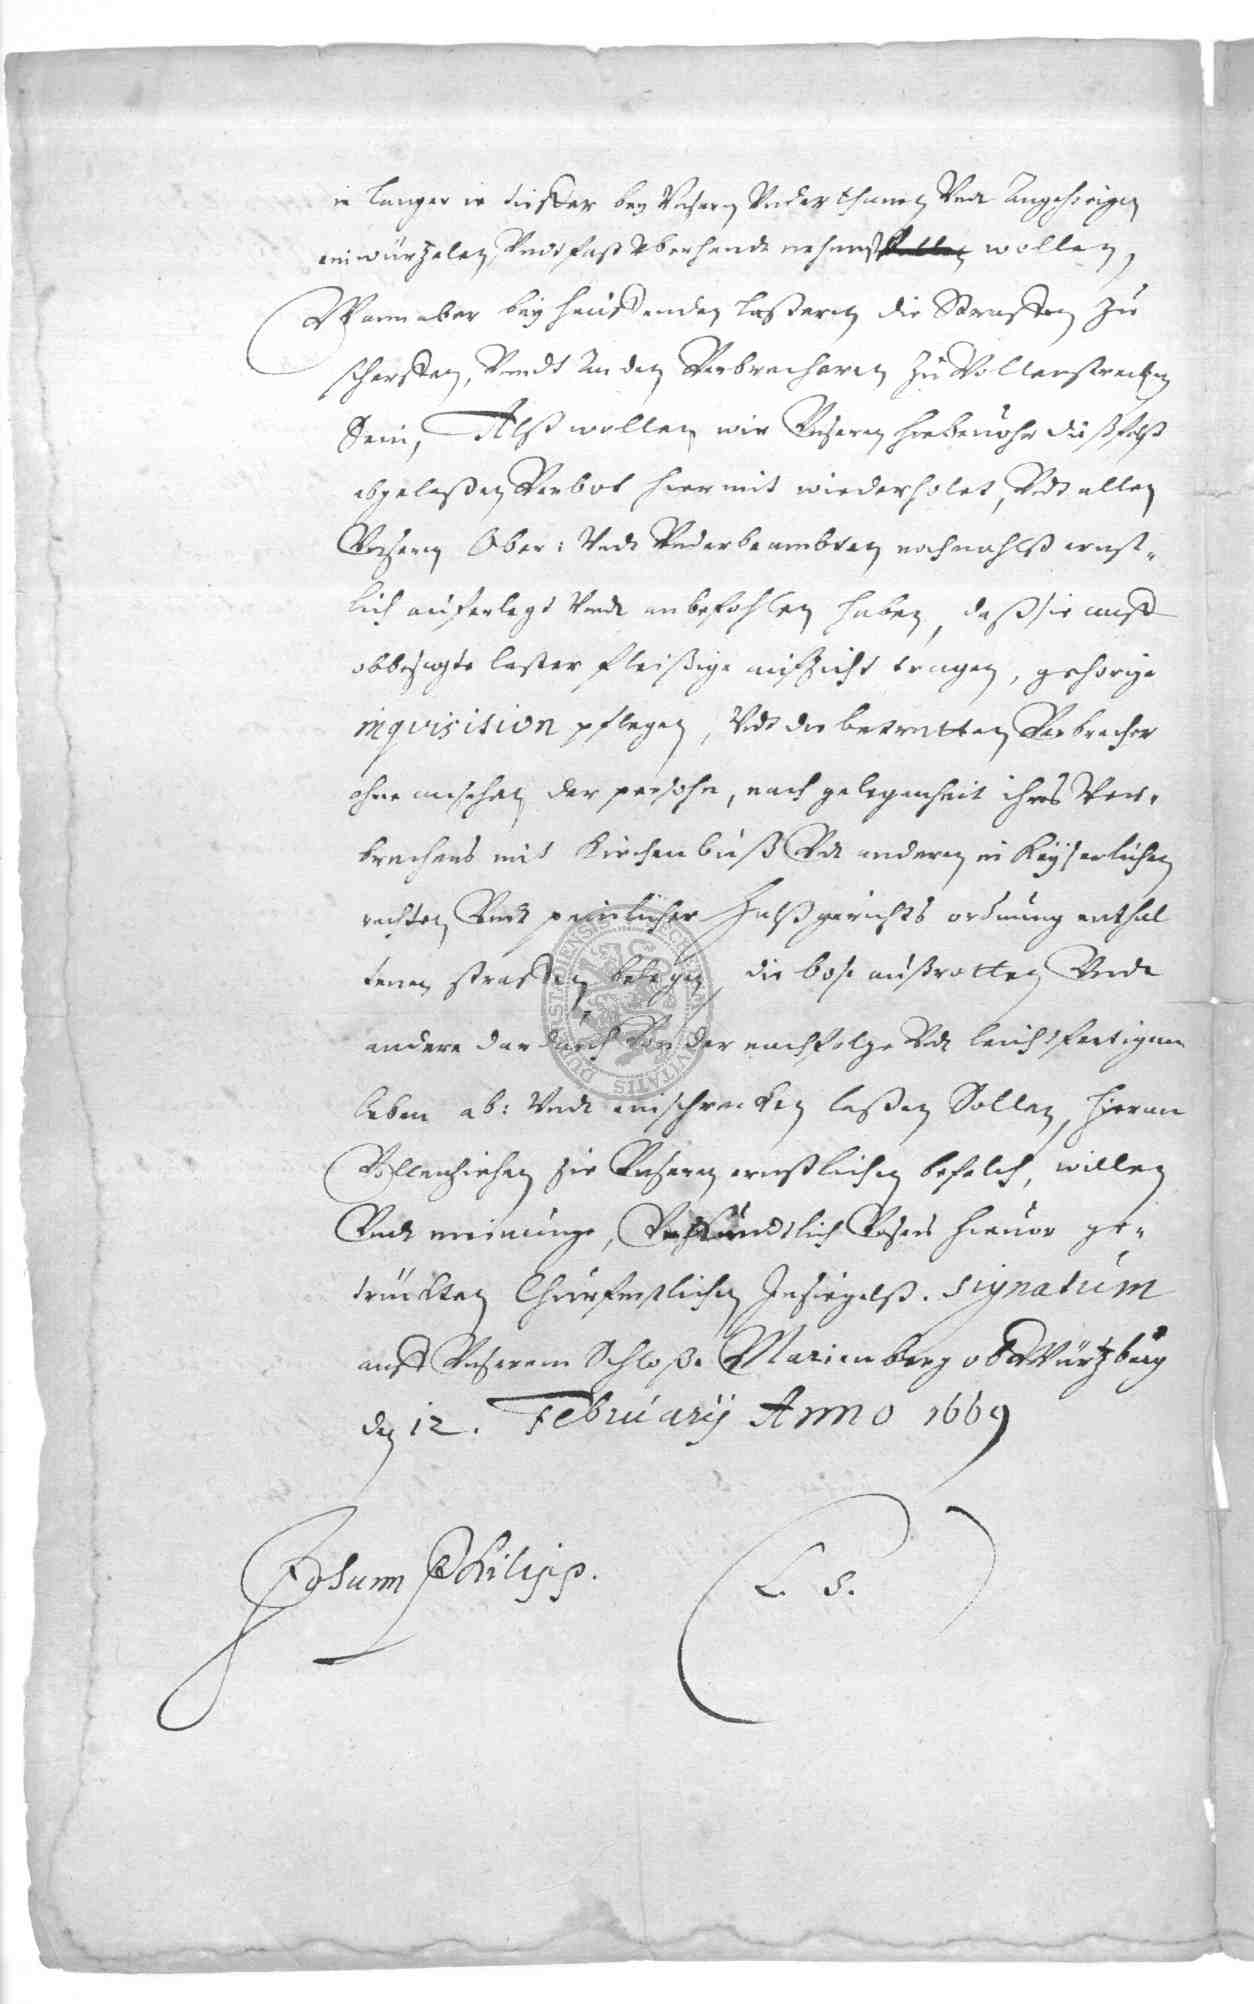 ie länger ie tieffer bey Unsern Underthanen Undt Angehörigen
einwürzelen, Undt fast überhandt nehmen wollen,
Wann aber bey häuffenden lastern die Straffen zu
schärffen, Undt An den Verbrecheren zu Vollenstrecken
Sein, Alß wollen wir Unsern hiebeuohr dießfalß
abgelaßen Verbot hiermit wiederholet, Undt allen
Unsern Ober: Undt Underbeambten nochmahlß ernst-
lich auferlegt Undt anbefohlen haben, daß sie auff
obbesagte laster fleißige aufsicht tragen, gehörige
inquisision pflegen, Undt die betretten Verbrecher
ohne ansehen der persohn, nach gelegenheit ihres Ver-
brechens mit Kirchenbuß Undt anderen in Keyserlichen
rechten Undt peinlicher Halßgerichts ordnung enthal
tenen straffen belegen, die böse außrotten Undt
andere dardurch Von der nachfolge Undt leichtfertigem
leben ab: Undt einschrecken laßen Sollen, hieran
Vollenziehen sie Unsern ernstlichen befelch, willen
Undt meinunge, Uhrkündtlich Unsers hieuor ge-
trückten Churfürstlichen Insiegelß. Signatum
auff Unserem Schloße Marienberg ob Würtzburg
den 12. February Anno 1669
Johann Philipp.
(L. S.)
SIGILLUM CIVITATIS DUDERSTADIENSIS